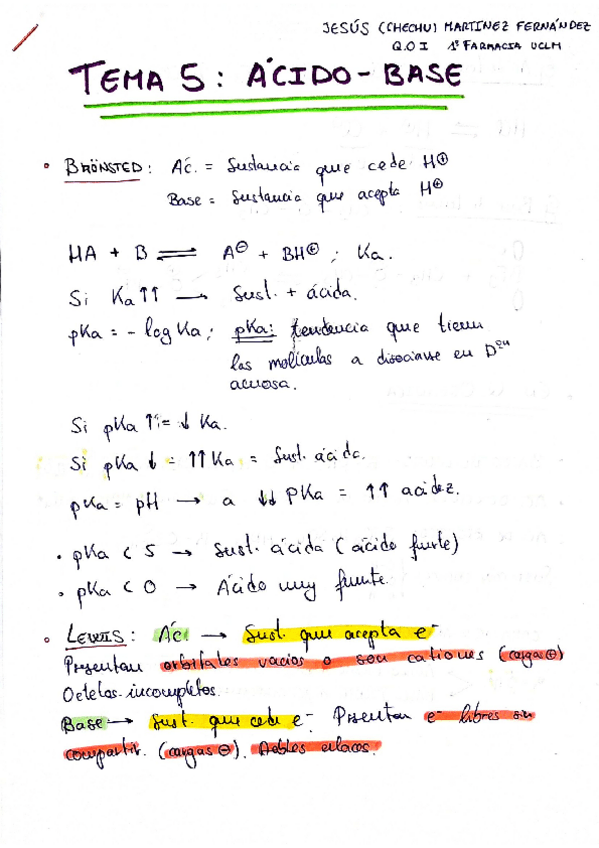 JESÚS (CHECHU) MARTINEZ FERNÁNDEZ
Q.O I 1º FARMACIA UCLM
TEMA 5: ÁCIDO-BASE
• BRÖNSTED: Ác. = Sustancia que cede H⊕
Base = Sustancia que acepta H⊕
HA + B ⇌ A⊖ + BH⊕ ; Ka.
Si Ka ↑↑ → Sust. + ácida.
pKa = - log Ka; pKa: tendencia que tienen
las moléculas a disociarse en Dºⁿ
acuosa.
Si pKa ↑ = ↓ Ka.
Si pKa ↓ = ↑↑ Ka = Sust. ácida.
pKa = pH → a ↓↓ PKa = ↑↑ acidez.
• pKa < 5 → Sust. ácida (ácido fuerte)
• pKa < 0 → Ácido muy fuerte.
• LEWIS: Ác. → Sust. que acepta e⁻
Presentan orbitales vacíos o son cationes (carga ⊕)
Octetos incompletos.
Base → Sust. que cede e⁻. Presentan e⁻ libres sin
compartir. (cargas ⊖). Dobles enlaces.